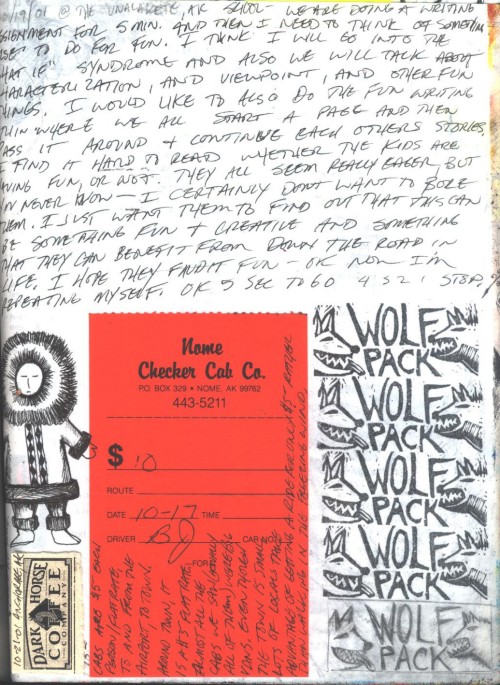 /19/01 @ THE UNALAKLEET, AK SCHOOL WE ARE DOING A WRITING
ASSIGNMENT FOR 5 MIN. AND THEN I NEED TO THINK OF SOMETHING
ELSE TO DO FOR FUN. I THINK I WILL GO INTO THE
"WHAT IF" SYNDROME AND ALSO WE WILL TALK ABOUT
CHARACTERIZATION, AND VIEWPOINT, AND OTHER FUN
THINGS. I WOULD LIKE TO ALSO DO THE FUN WRITING
THIN WHERE WE ALL START A PAGE AND THEN
PASS IT AROUND & CONTINUE EACH OTHERS STORIES,
I FIND IT HARD TO READ WHETHER THE KIDS ARE
HAVING FUN, OR NOT. THEY ALL SEEM REALLY EAGER, BUT
NEVER KNOW — I CERTAINLY DON'T WANT TO BORE
THEM. I JUST WANT THEM TO FIND OUT THAT THIS CAN
BE SOMETHING FUN & CREATIVE AND SOMETHING
THAT THEY CAN BENEFIT FROM DOWN THE ROAD IN
LIFE. I HOPE THEY FIND IT FUN — OK NOW I'M
REPEATING MYSELF. OK 5 SEC TO GO 4 3 2 1 STOP!
Nome
Checker Cab Co.
P.O. BOX 329 • NOME, AK 99762
443-5211
$ 10
ROUTE
DATE 10-17 TIME
DRIVER BJ CAB NO.
FOR
CABS ARE $5 EACH
PERSON FLAT RATE,
TO AND FROM THE
AIRPORT TO TOWN.
AROUND TOWN, IT
IS A $3 FLAT RATE.
ALMOST ALL THE
CABS WE SAW
ALL OF THEM WERE
VANS. EVEN THOUGH
THE TOWN IS SMALL
LOTS OF LOCALS TAKE
ADVANTAGE OF GETTING A RIDE FOR ONLY $5 RATHER
THAN WALKING IN THE FREEZING WIND,
10-21-01 ANCHORAGE, AK
DARK HORSE
COFFEE
COMPANY
WOLF
PACK
WOLF
PACK
WOLF
PACK
WOLF
PACK
WOLF
PACK